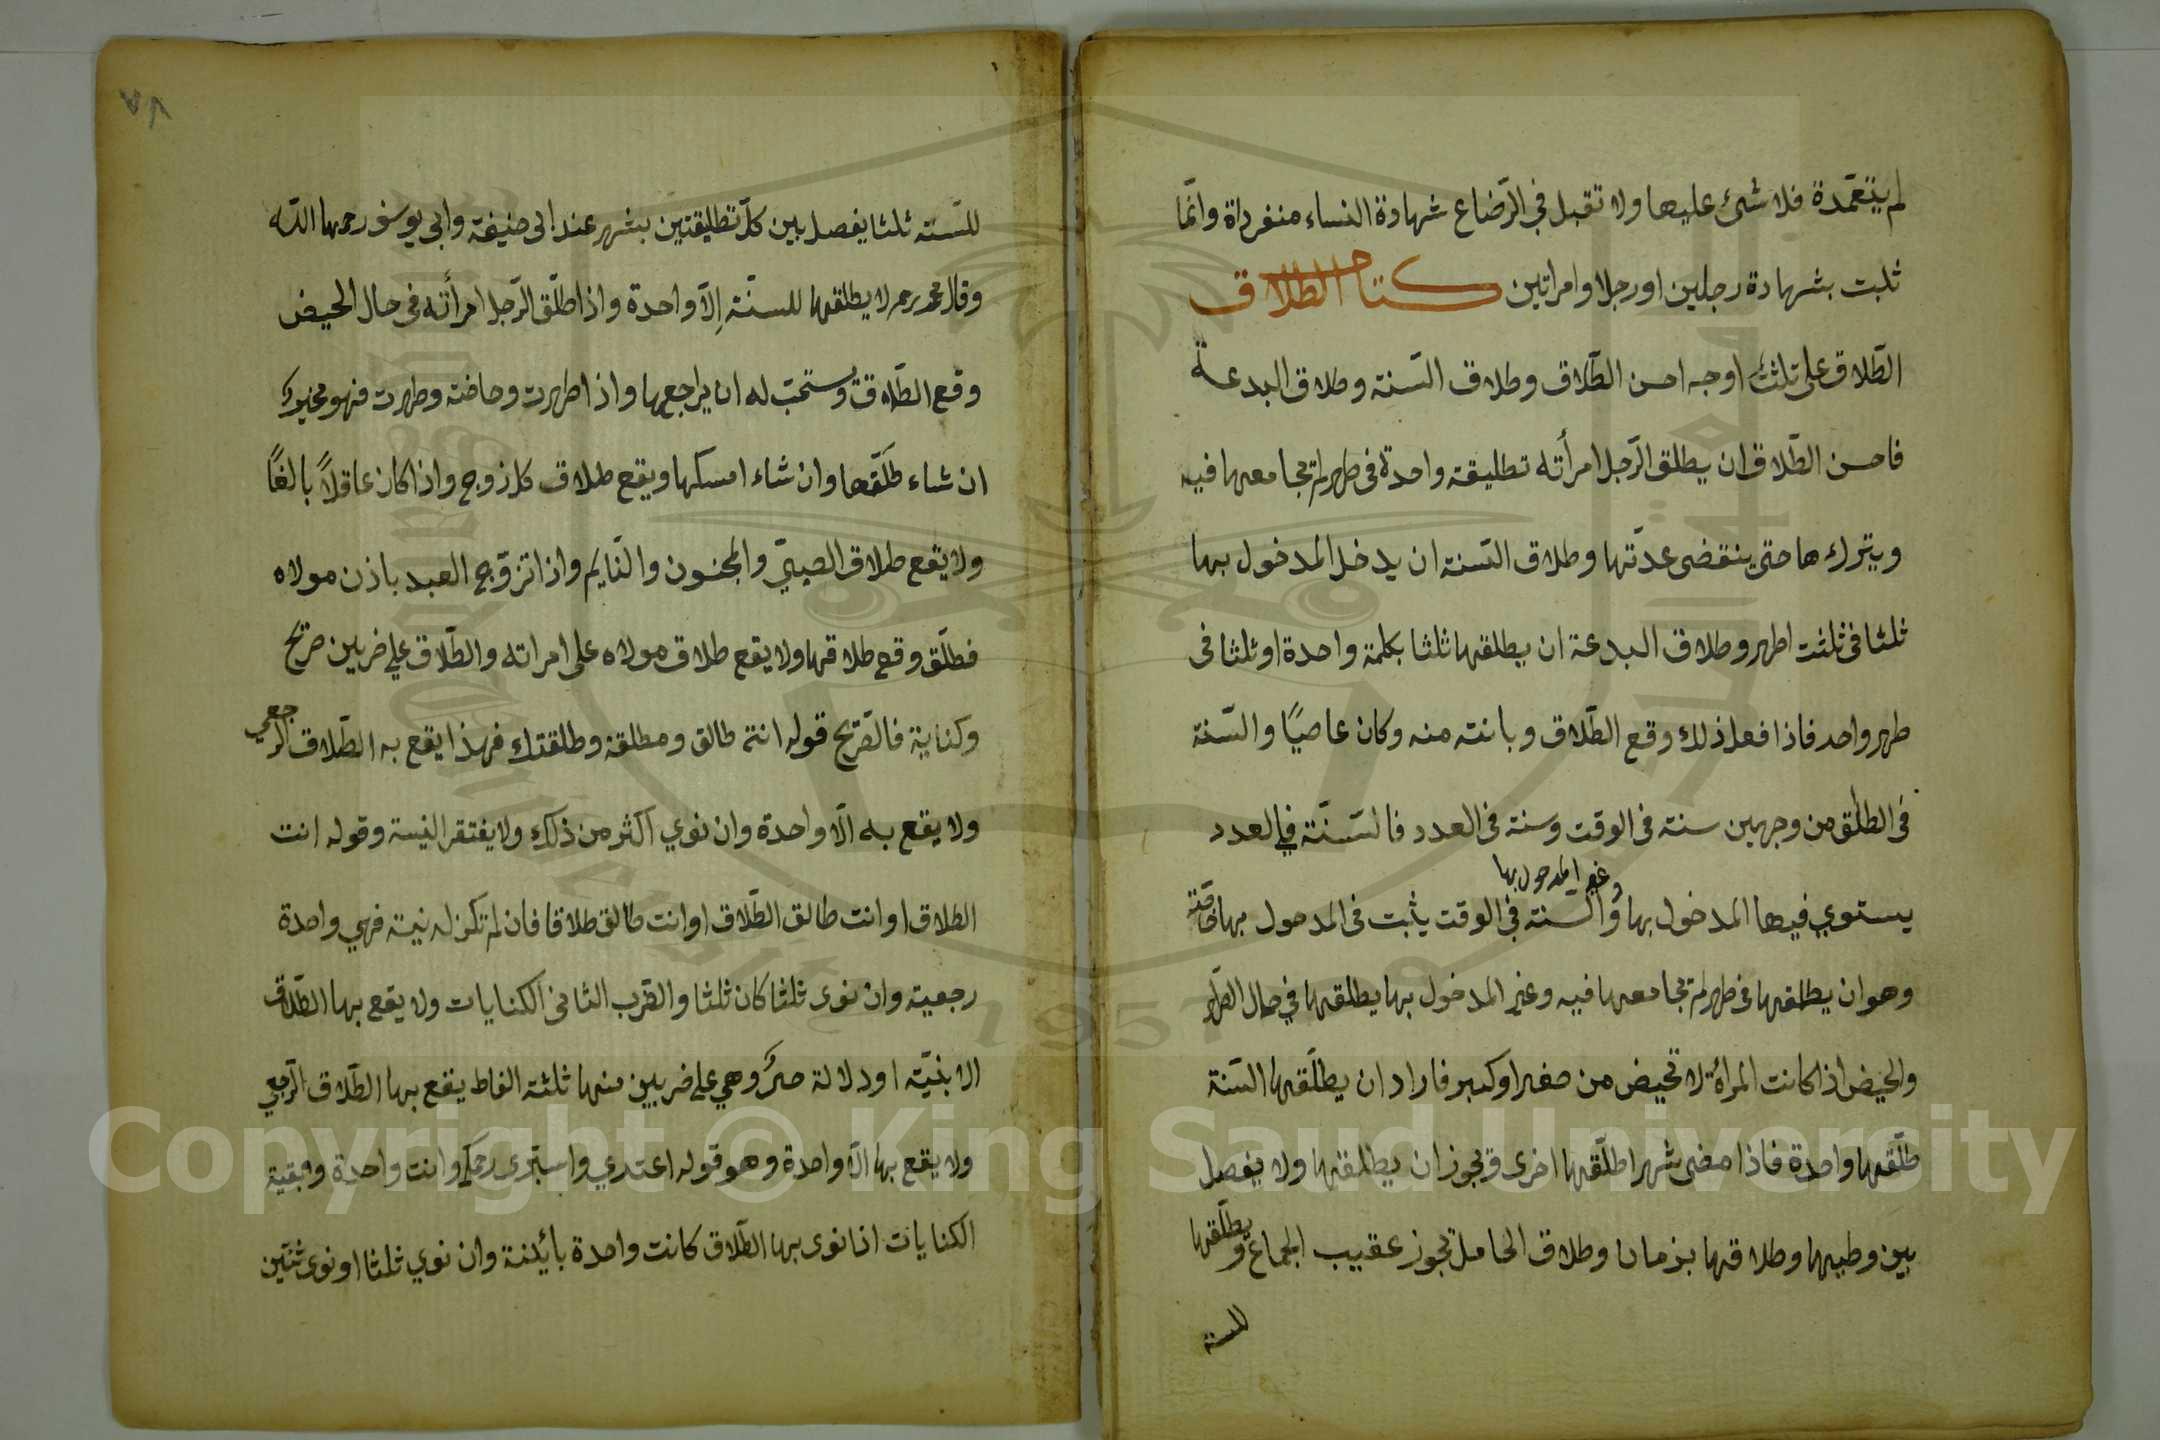 لم يتعمدة فلا شئ عليها ولا تقبل في الرّضاع شهادة النساء منفرداة وانّما
ثلبت بشهادة رجلين اورجلا وامراتين كتاب الطلاق
الطّلاق على ثلثة اوجه احسن الطّلاق وطلاق السّنة وطلاق البدعة
فاحسن الطّلاق ان يطلق الرّجل امرأته تطليقة واحدة في طهر لم يجامعها فيه
ويترك ها حتى ينقضى عدّتها وطلاق السّنة ان يدخل المدخول بها
ثلثا فى ثلثت اطهر وطلاق البدعة ان يطلقها ثلثا بكلمة واحدة اوثلثا فى
طهر واحد فاذا فعل ذلك وقع الطّلاق وبانت منه وكان عاصيًا والسّنة
فى الطلق من وجهين سنة فى الوقت وسنة فى العدد فالسّنّة في العدد
يستوي فيها المدخول بها وغير المدخول بها والسّنة في الوقت يثبت فى المدخول بها خاصّة
وهو ان يطلقها فى طهر لم يجامعها فيه وغير المدخول بها يطلقها في حال الطهر
والحيض اذا كانت المراة لا تحيض من صغر اوكبر فاراد ان يطلّقها السّنة
طلّقها واحدة فاذا مضى شهر اطلّقها اخرى ويجوز ان يطلقها ولا يفصل
بين وطيها وطلاقها بزمان وطلاق الحامل تجوز عقيب الجماع ويطلّقها
للسنة
٧٨
للسّنة ثلثا يفصل بين كلّ تطليقتين بشهر عند ابى حنيفة وابي يوسف رحمهما اللّه
وقال محمد رحمه لا يطلقها للسنّة اِلّا واحدة واذا طلّق الرّجل امرأته فى حال الحيض
وقع الطّلاق ويستحبّ له ان يراجعها واذا طهرت وحاضت وطهرت فهو مخيرك
ان شاء طلّقها وان شاء امسكها ويقع طلاق كل زوج واذا كان عاقلاً بالغًا
ولا يقع طلاق الصبيّ والمجنون والنّايم واذا تزوّج العبد باذن مولاه
فطلّق وقع طلاقها ولا يقع طلاق مولاه على امراته والطّلاق على ضربين صريح
وكناية فالصّريح قوله انت طالق ومطلقة وطلقتك فهذا يقع به الطّلاق الرجعي
ولا يقع به الّا واحدة وان نوي اكثر من ذلك ولا يفتقر النيسة وقوله انت
الطلاق اوانت طالق الطّلاق اوانت طالق طلاقا فان لم تكن له نيتة فهي واحدة
رجعية وان نوى ثلثا كان ثلثا والضّرب الثانى الكنايات ولا يقع بها الطّلاق
الا بنيّة اودلالة حال وهي على ضربين منها ثلثة الفاط يقع بها الطّلاق الرّجعي
ولا يقع بها الّا واحدة وهو قوله اعتدي واستبرى رحمك وانت واحدة وبقية
الكنايات اذا نوى بها الطّلاق كانت واحدة بائنة وان نوي ثلثا اونوى ثنتين
Copyright © King Saud University
1957